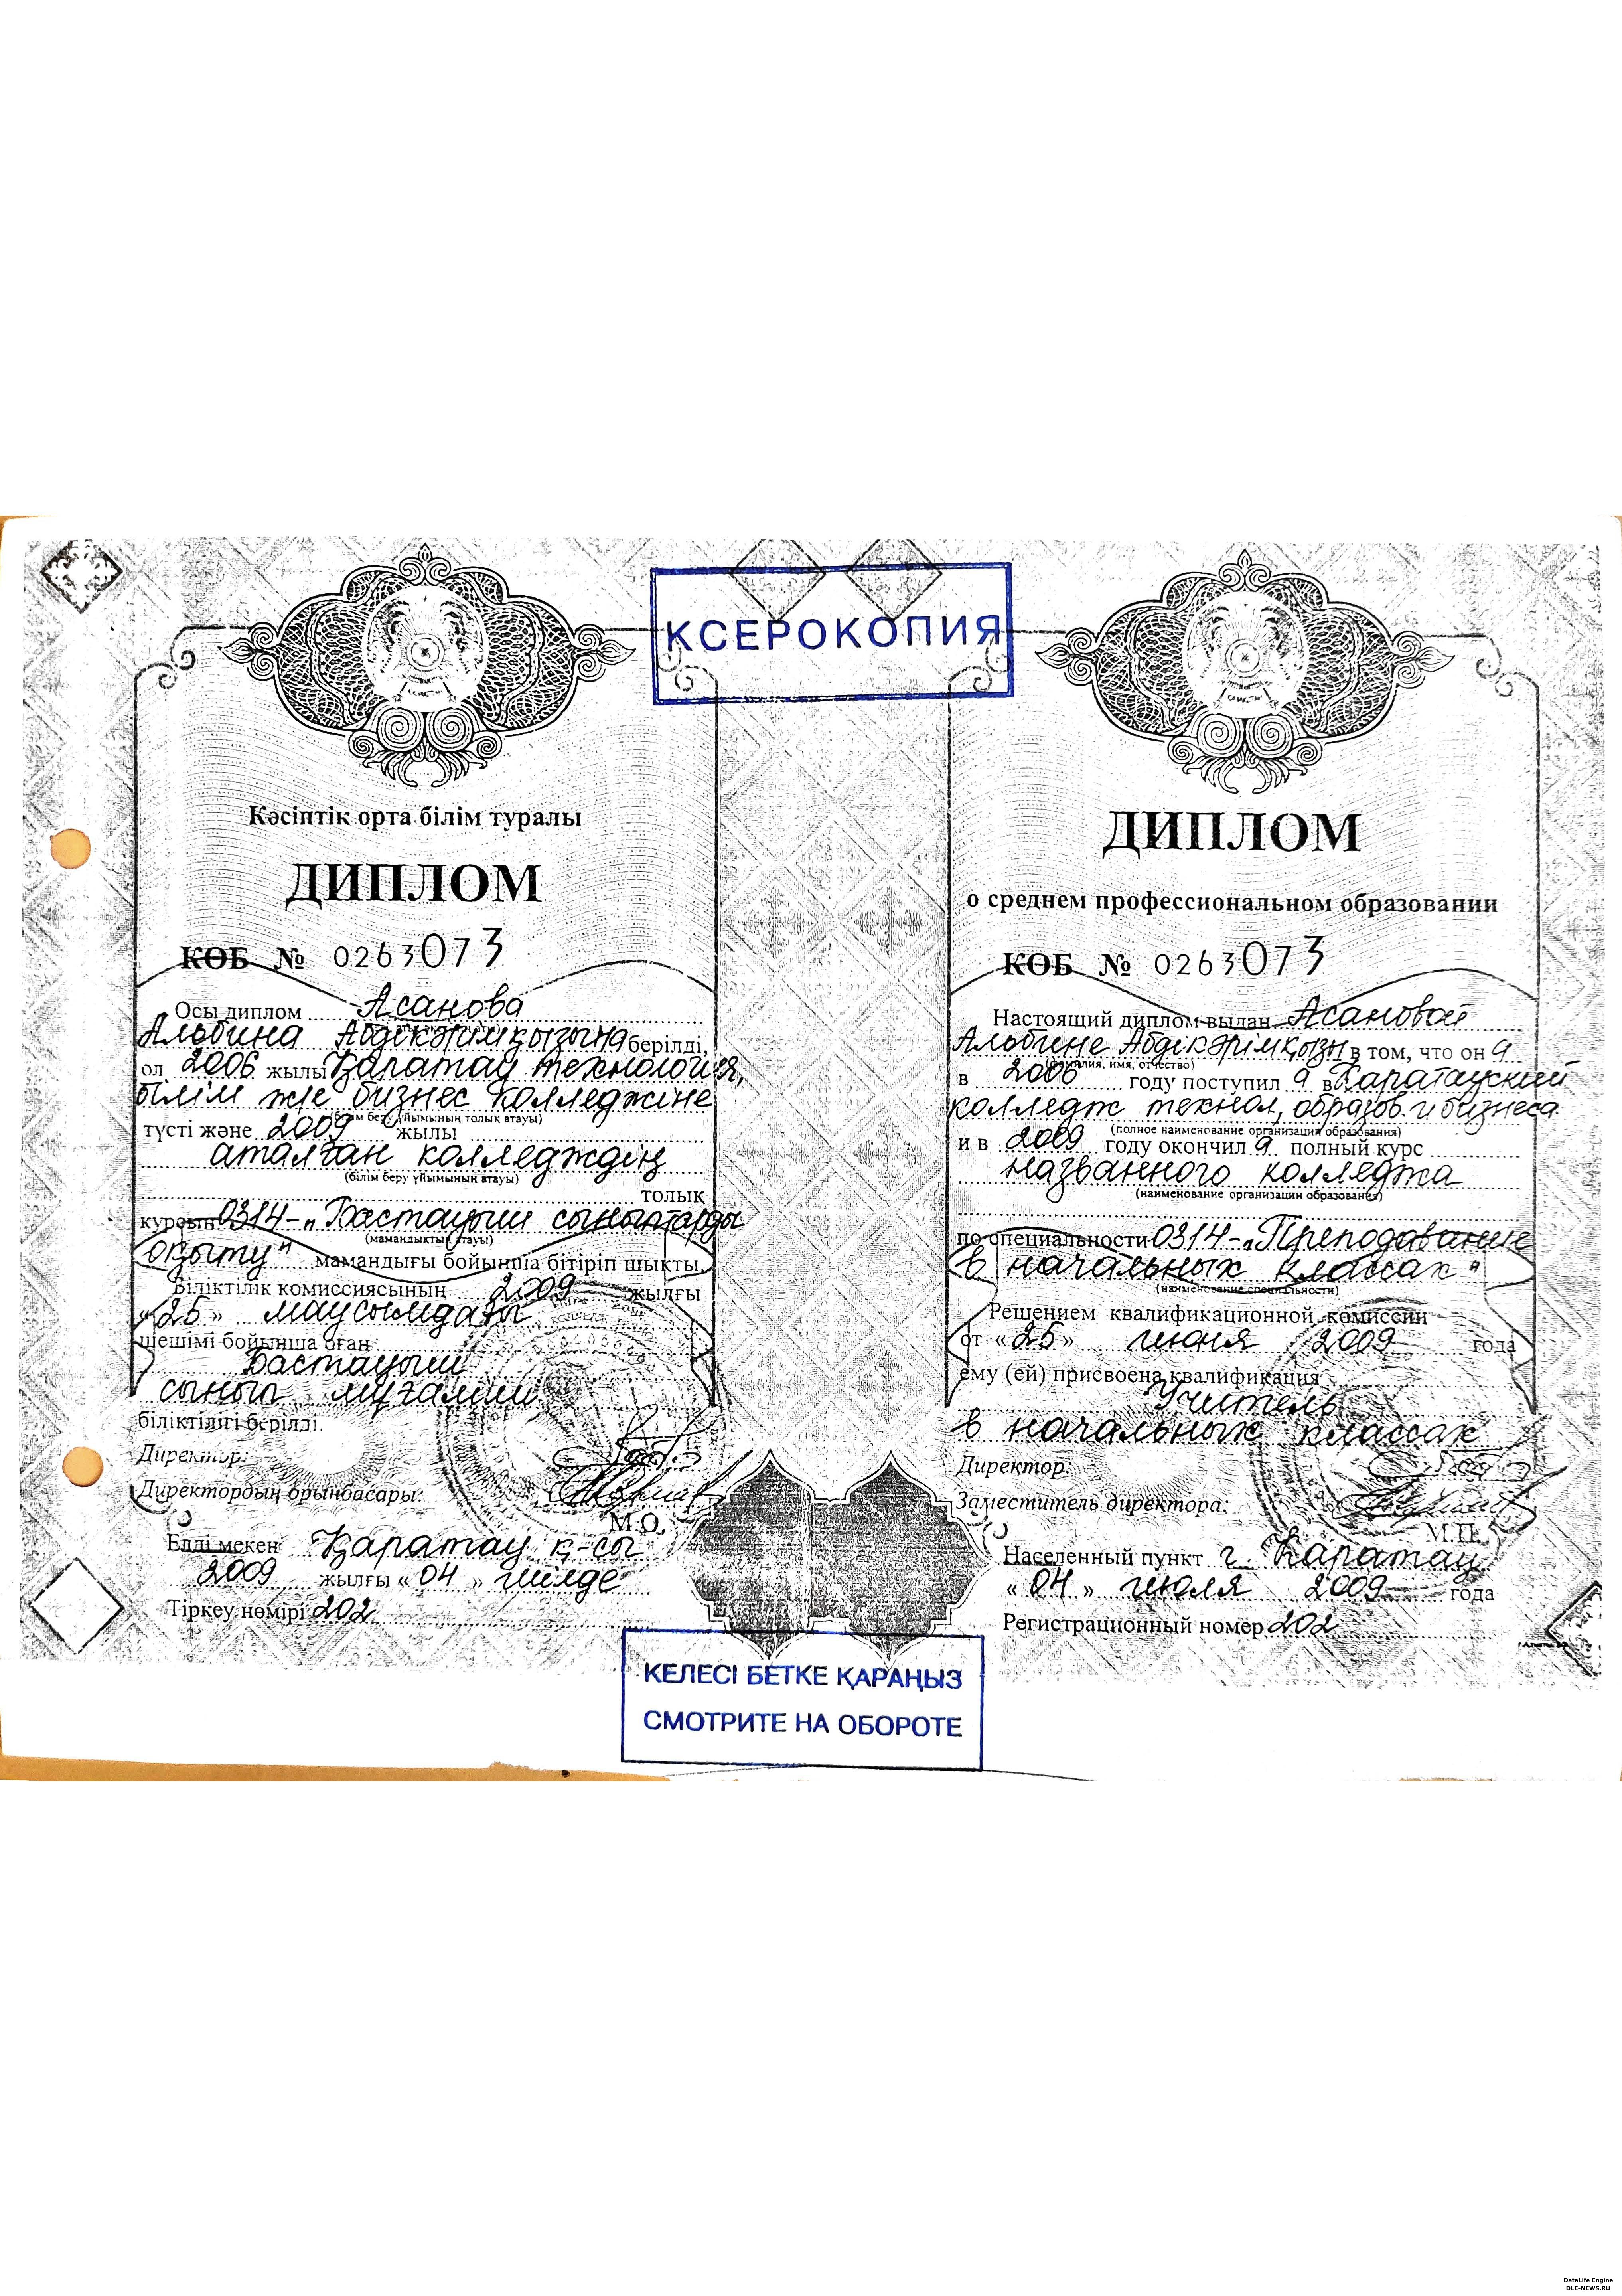 КСЕРОКОПИЯ
Кәсіптік орта білім туралы
ДИПЛОМ
КӨБ № 0263073
Осы диплом Асанова
Альбина Абдікәрімқызына берілді,
ол 2006 жылы Қаратау технология,
білім және бизнес колледжіне
(білім беру ұйымының толық атауы)
түсті және 2009 жылы
аталған колледждің
(білім беру ұйымының атауы)
толық
курсын 0314-„Бастауыш сыныптарды
(мамандықтың атауы)
оқыту" мамандығы бойынша бітіріп шықты.
Біліктілік комиссиясының 2009 жылғы
«25» маусымдағы
шешімі бойынша оған
Бастауыш
сынып мұғалімі
біліктілігі берілді.
Директор:
Директордың орынбасары:
М.О.
Елді мекен Қаратау қ-сы
2009 жылғы «04» шілде
Тіркеу нөмірі 202
ДИПЛОМ
о среднем профессиональном образовании
КӨБ № 0263073
Настоящий диплом выдан Асановой
Альбине Абдікәрімқызы в том, что он а
(фамилия, имя, отчество)
в 2006 году поступил а в Каратауский
колледж технол, образов. и бизнеса
(полное наименование организации образования)
и в 2009 году окончил а полный курс
названного колледжа
(наименование организации образования)
по специальности 0314-„Преподавание
в начальных классах"
(наименование специальности)
Решением квалификационной комиссии
от «25» июня 2009 года
ему (ей) присвоена квалификация
Учитель
в начальных классах
Директор:
Заместитель директора:
М.П.
Населенный пункт г. Каратау
«04» июля 2009 года
Регистрационный номер 202
КЕЛЕСІ БЕТКЕ ҚАРАҢЫЗ
СМОТРИТЕ НА ОБОРОТЕ
DataLife Engine
DLE-NEWS.RU